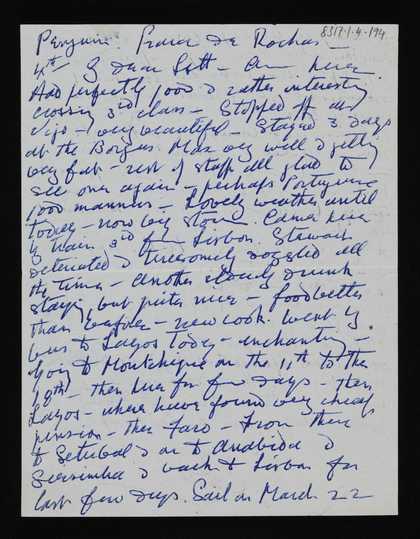 8317.1.4.194
Penguin. Praia da Rocha –
4th My dear Sett – Am here.
Had perfectly good & rather interesting
crossing 3rd class – Stopped off at
Vigo – very beautiful – Stayed 3 days
at the Borges Max very well & getting
very fat – rest of staff all glad to
see one again – perhaps Portuguese
good manners – Lovely weather until
today – now big storm. Came here
by train 3rd from Lisbon. Stewart
deteriated & tiresomely sozzled all
the time – another elderly drunk
staying but quite nice – food better
than before – new cook. Went by
bus to Lagos today – enchanting –
Going to Monchique on the 11th to the
18th – then here for few days – then
Lagos – where have found very cheap
pension – then Faro – From there
to Setubal & on to Arrabida &
Sesimbra & back to Lisbon for
last few days. Sail on March 22